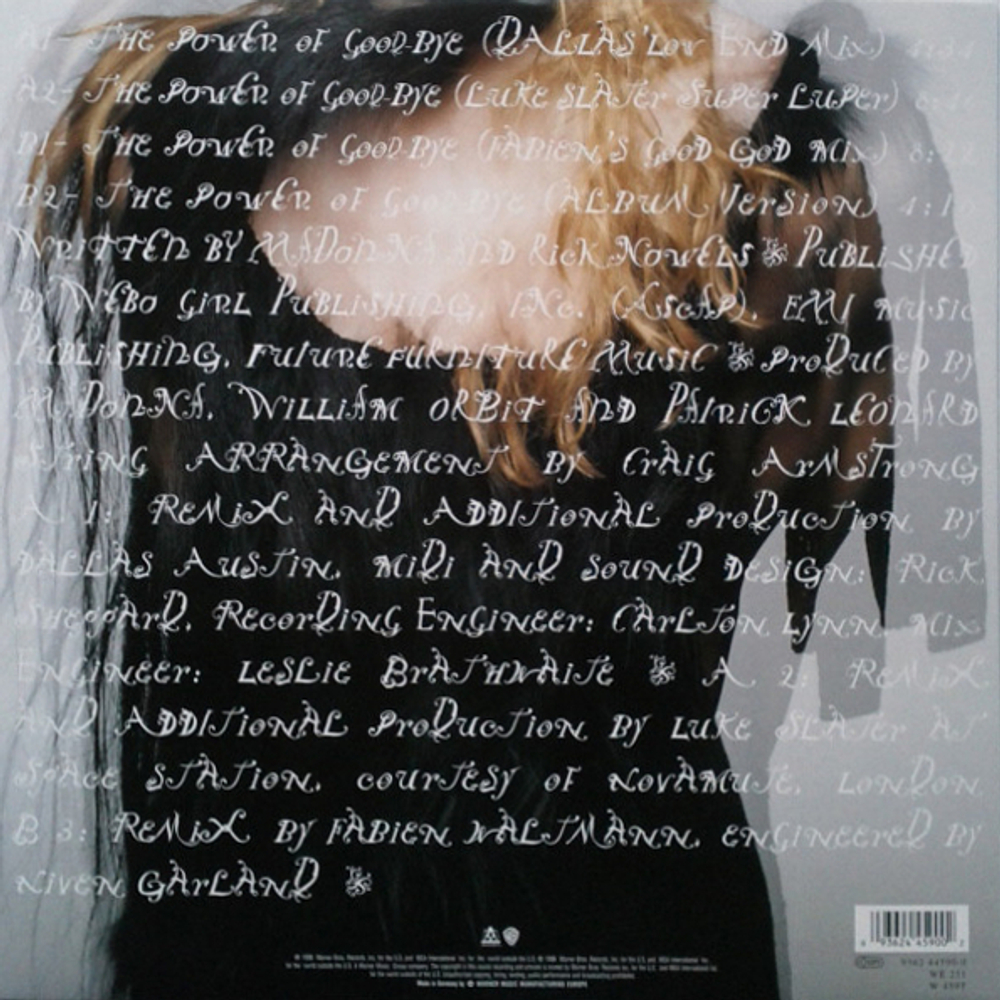 A1- The Power of Good-Bye (Dallas' Low End Mix) 4:34
A2- The Power of Good-Bye (Luke Slater Super Luper)
B1- The Power of Good-Bye (Fabien's Good God Mix) 8:
B2- The Power of Good-Bye (Album Version) 4:10
Written by Madonna and Rick Nowels Published
by Webo Girl Publishing, Inc. (Ascap), EMI Music
Publishing, Future Furniture Music Produced by
Madonna, William Orbit and Patrick Leonard
String Arrangement by Craig Armstrong
A 1: Remix and Additional Production by
Dallas Austin, Midi and Sound Design: Rick
Sheppard, Recording Engineer: Carlton Lynn, Mix
Engineer: Leslie Brathwaite A 2: Remix
and Additional Production by Luke Slater at
Space Station, courtesy of Novamute, London
B 3: Remix by Fabien Waltmann, engineered by
Niven Garland
6 93624 45900 2
WE 251
Made in Germany by WARNER MUSIC MANUFACTURING EUROPE